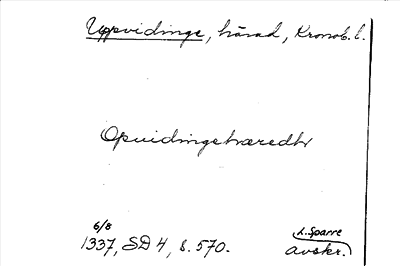 Uppvidinge, härad, Kronob. l.
Opuidingehæredh
6/8
1337, SD 4, s. 570.
L. Sparre
avskr.